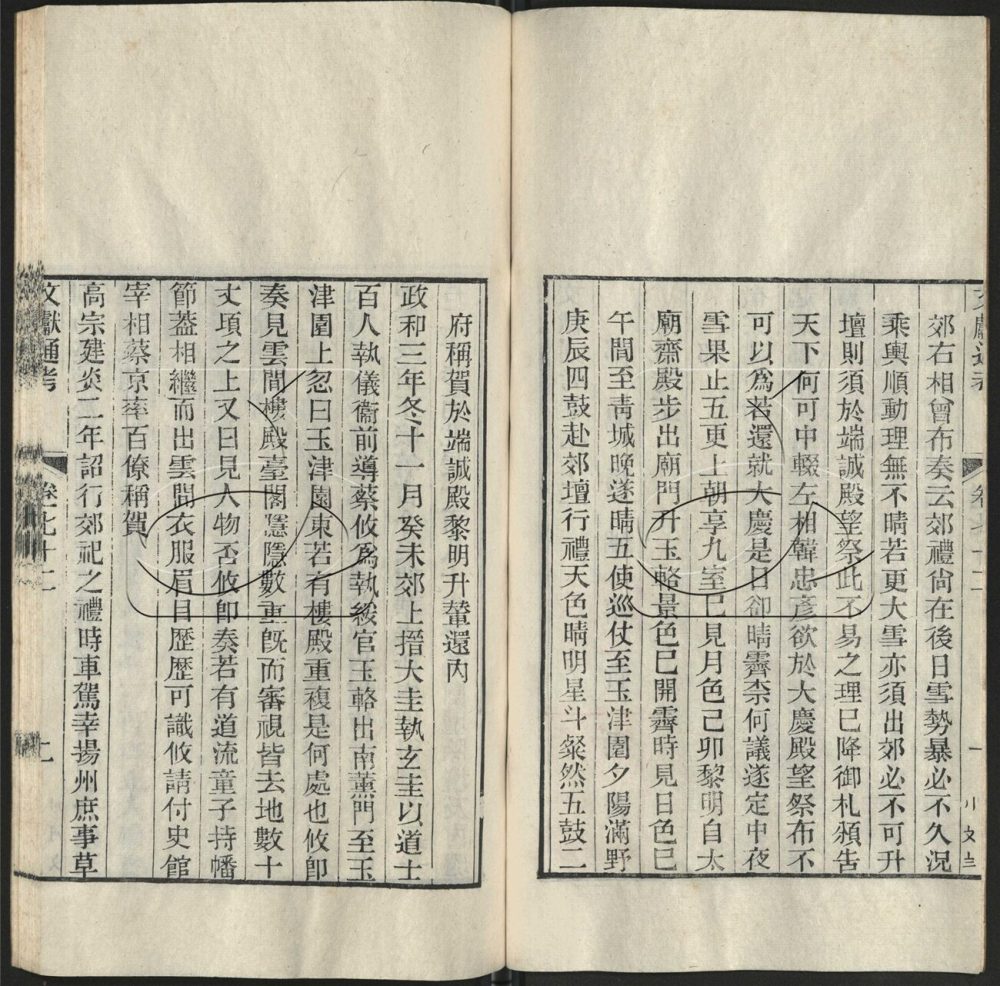 郊右相曾布奏云郊禮尙在後日雪勢暴必不久況
乘輿順動理無不晴若更大雪亦須出郊必不可升
壇則須於端誠殿望祭此不易之理已降御札頒告
天下何可中輟左相韓忠彥欲於大慶殿望祭布不
可以爲若還就大慶是日卻晴霽柰何議遂定中夜
雪果止五更上朝享九室已見月色己卯黎明自太
廟齋殿步出廟門升玉輅景色已開霽時見日色巳
午間至靑城晚遂晴五使巡仗至玉津園夕陽滿野
庚辰四鼓赴郊壇行禮天色晴明星斗粲然五鼓二
府稱賀於端誠殿黎明升輦還內
政和三年冬十一月癸未郊上搢大圭執玄圭以道士
百人執儀衞前導蔡攸爲執綏官玉輅出南薰門至玉
津園上忽曰玉津園東若有樓殿重複是何處也攸卽
奏見雲間樓殿臺閣隱隱數重旣而審視皆去地數十
丈頃之上又曰見人物否攸卽奏若有道流童子持幡
節蓋相繼而出雲間衣服眉目歷歷可識攸請付史館
宰相蔡京率百僚稱賀
高宗建炎二年詔行郊祀之禮時車駕幸揚州庶事草
文獻通考 卷七十二